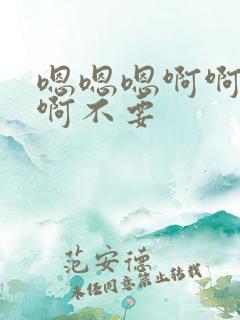 嗯嗯嗯啊啊
啊不要
范安德
未经同意禁止转载